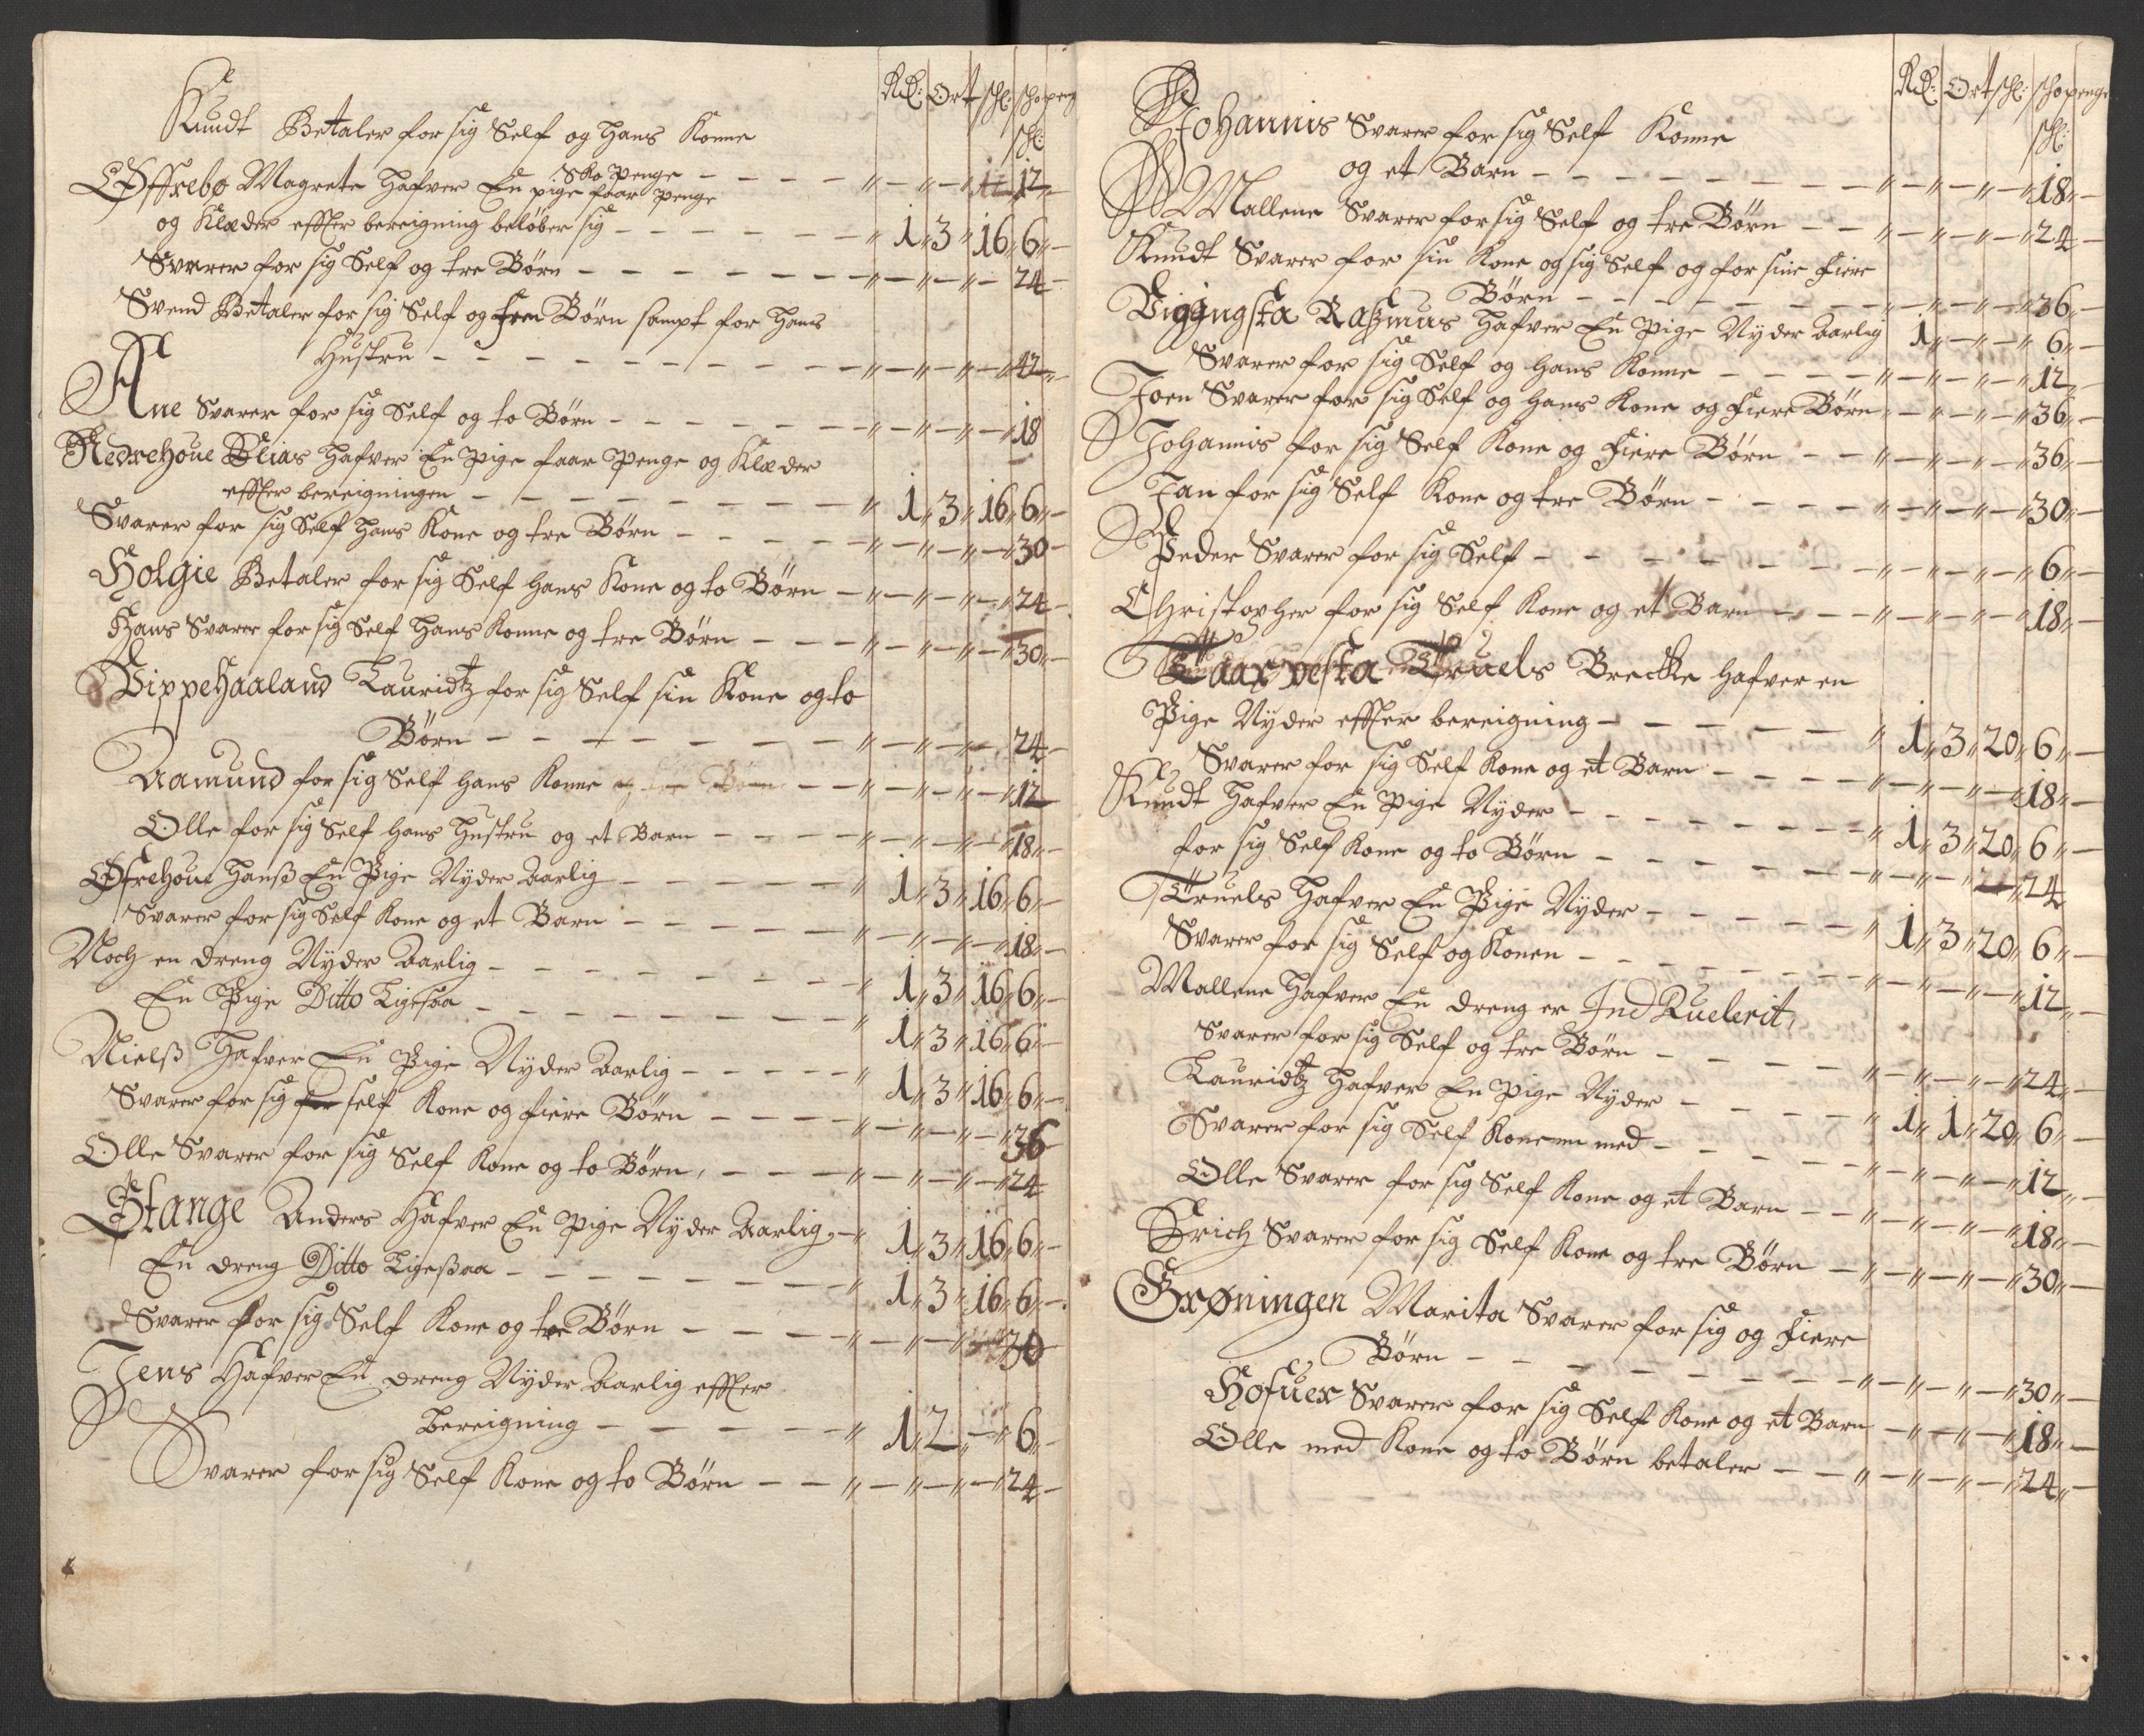 Rd: Ort sch: schopeng
sch:
Knudt Betaler for sig Self og Hans Konne
Sko Penge - - - - „ - „ - „ 12 „ -
Øffrebo Magrete Hafver En pige faar Penge
og Klæder effter bereigning beløber sig - - - - - „ 1 „ 3 „ 16 „ 6 „ -
Svarer for sig Self og tre Børn - - - - - - „ - „ - „ - 24 -
Svend Betaler for sig Self og Børn sampt for Hans
Hustru - - - - - - - - „ - „ - „ - „ 42 „ -
Ane Svarer for sig Self og to Børn - - - - - - „ - „ - „ - „ 18
Nedrehoue Elias Hafver En Pige faar Penge og Klæder
effter bereigningen - - - - - - - „ 1 „ 3 „ 16 „ 6 „ -
Svarer for sig Self Hans Kone og tre Børn - - - - „ - „ - „ - „ 30 -
Holgie Betaler for sig Self Hans Kone og to Børn - „ - „ - „ - „ 24 -
Hans Svarer for sig Self Hans Konne og tre Børn - - - „ - „ - „ - „ 30 „ -
VippeHaaland Lauridtz for sig Self sin Kone og to
Børn - - - - - - - „ - „ - „ - 24 -
Aamund for sig Self Hans Konne - - „ - „ - „ - „ 12
Olle for sig Self Hans Hustru og et Barn - - - - „ - „ - „ - „ 18 „ -
Øfrehoue Hanß En Pige Nyder Aarlig - - - - - „ 1 „ 3 „ 16 „ 6 „ -
Svarer for sig Self Kone og et Barn - - - - - „ - „ - „ - „ 18 „ -
Noch en dreng Nyder Aarlig - - - - - - - „ 1 „ 3 „ 16 „ 6 „ -
En Pige Ditto Ligesaa - - - - - - - „ 1 „ 3 „ 16 „ 6 „ -
Nielß Hafver En Pige Nyder Aarlig - - - - - „ 1 „ 3 „ 16 „ 6 „ -
Svarer for sig self Kone og fiere Børn - - - - „ - „ - „ - „ 36
Olle Svarer for sig Self Kone og to Børn, - - - „ - „ - „ - „ 24
Stange Anders Hafver En Pige Nyder Aarlig, - „ 1 „ 3 „ 16 „ 6 „ -
En dreng Ditto Ligeßaa - - - - - - - „ 1 „ 3 „ 16 „ 6 „ -
Svarer for sig Self Kone og tre Børn - - - - „ - „ - „ 30
Jens Hafver En dreng Nyder Aarlig effter
bereigning - - - - - „ 1 „ 2 „ - „ 6 „ -
Svarer for sig Self Kone og to Børn - - „ - „ - „ - „ 24 -
Rd: Ort sch: schopenge
sch:
Johannis Svarer for sig Self Konne
og et Barn - - - - - - - „ - „ - „ - „ 18 „ -
Mallene Svarer for sig Self og tre Børn - - „ - „ - „ - „ 24 -
Knudt Svarer for sin Kone og sig Self og for sine Fiere
Børn - - - - - - - „ - „ - „ - „ 36 „ -
Vigingsta Raßmus Hafver En Pige Nyder Aarlig 1 „ - „ - „ 6 „ -
Svarer for sig Self og Hans Konne - - - - „ - „ - „ - „ 12 „ -
Joen Svarer for sig Self og Hans Kone og Fiere Børn „ - „ - „ - „ 36 „ -
Johannis for sig Self Kone og Fiere Børn - - „ - „ - „ - „ 36 „ -
Jan for sig Self Kone og tre Børn - - - - „ - „ - „ - „ 30 „ -
Peder Svarer for sig Self - - - - - - - „ - „ - „ - „ 6 „ -
Christopher for sig Self Kone og et Barn - - - „ - „ - „ - „ 18 „ -
Taarvesta Truels Breckke Hafver en
Pige Nyder effter bereigning - - - - - - „ 1 „ 3 „ 20 „ 6 „ -
Svarer for sig Self Kone og et Barn - - - - „ - „ - „ - „ 18 „ -
Knudt Hafver En Pige Nyder - - - - - - - „ 1 „ 3 „ 20 „ 6 „ -
for sig Self Kone og to Børn - - - - - - „ - „ - „ 24
Truels Hafver En Pige Nyder - - - - - „ 1 „ 3 „ 20 „ 6 „ -
Svarer for sig Self og Konen - - - - - - - „ - „ - „ - „ 12 „ -
Mallene Hafver En dreng er Ind Ruelerit,
Svarer for sig Self og tre Børn - - - - - „ - „ - „ - „ 24 „ -
Lauridtz Hafver En Pige Nyder - - - - - „ 1 „ 1 „ 20 „ 6 „ -
Svarer for sig Self Konenn med - - - - - „ - „ - „ - „ 12 „ -
Olle Svarer for sig Self Kone og et Barn - - „ - „ - „ - „ 18 „ -
Erich Svarer for sig Self Kone og tre Børn - „ - „ - „ - „ 30 „ -
Grøningen Marita Svarer for sig og Fiere
Børn - - - - - - - „ - „ - „ - „ 30 „ -
Hofuer Svarer for sig Self Kone og et Barn - „ - „ - „ 18 „ -
Olle med Kone og to Børn betaler - - „ - „ - „ - „ 24 „ -